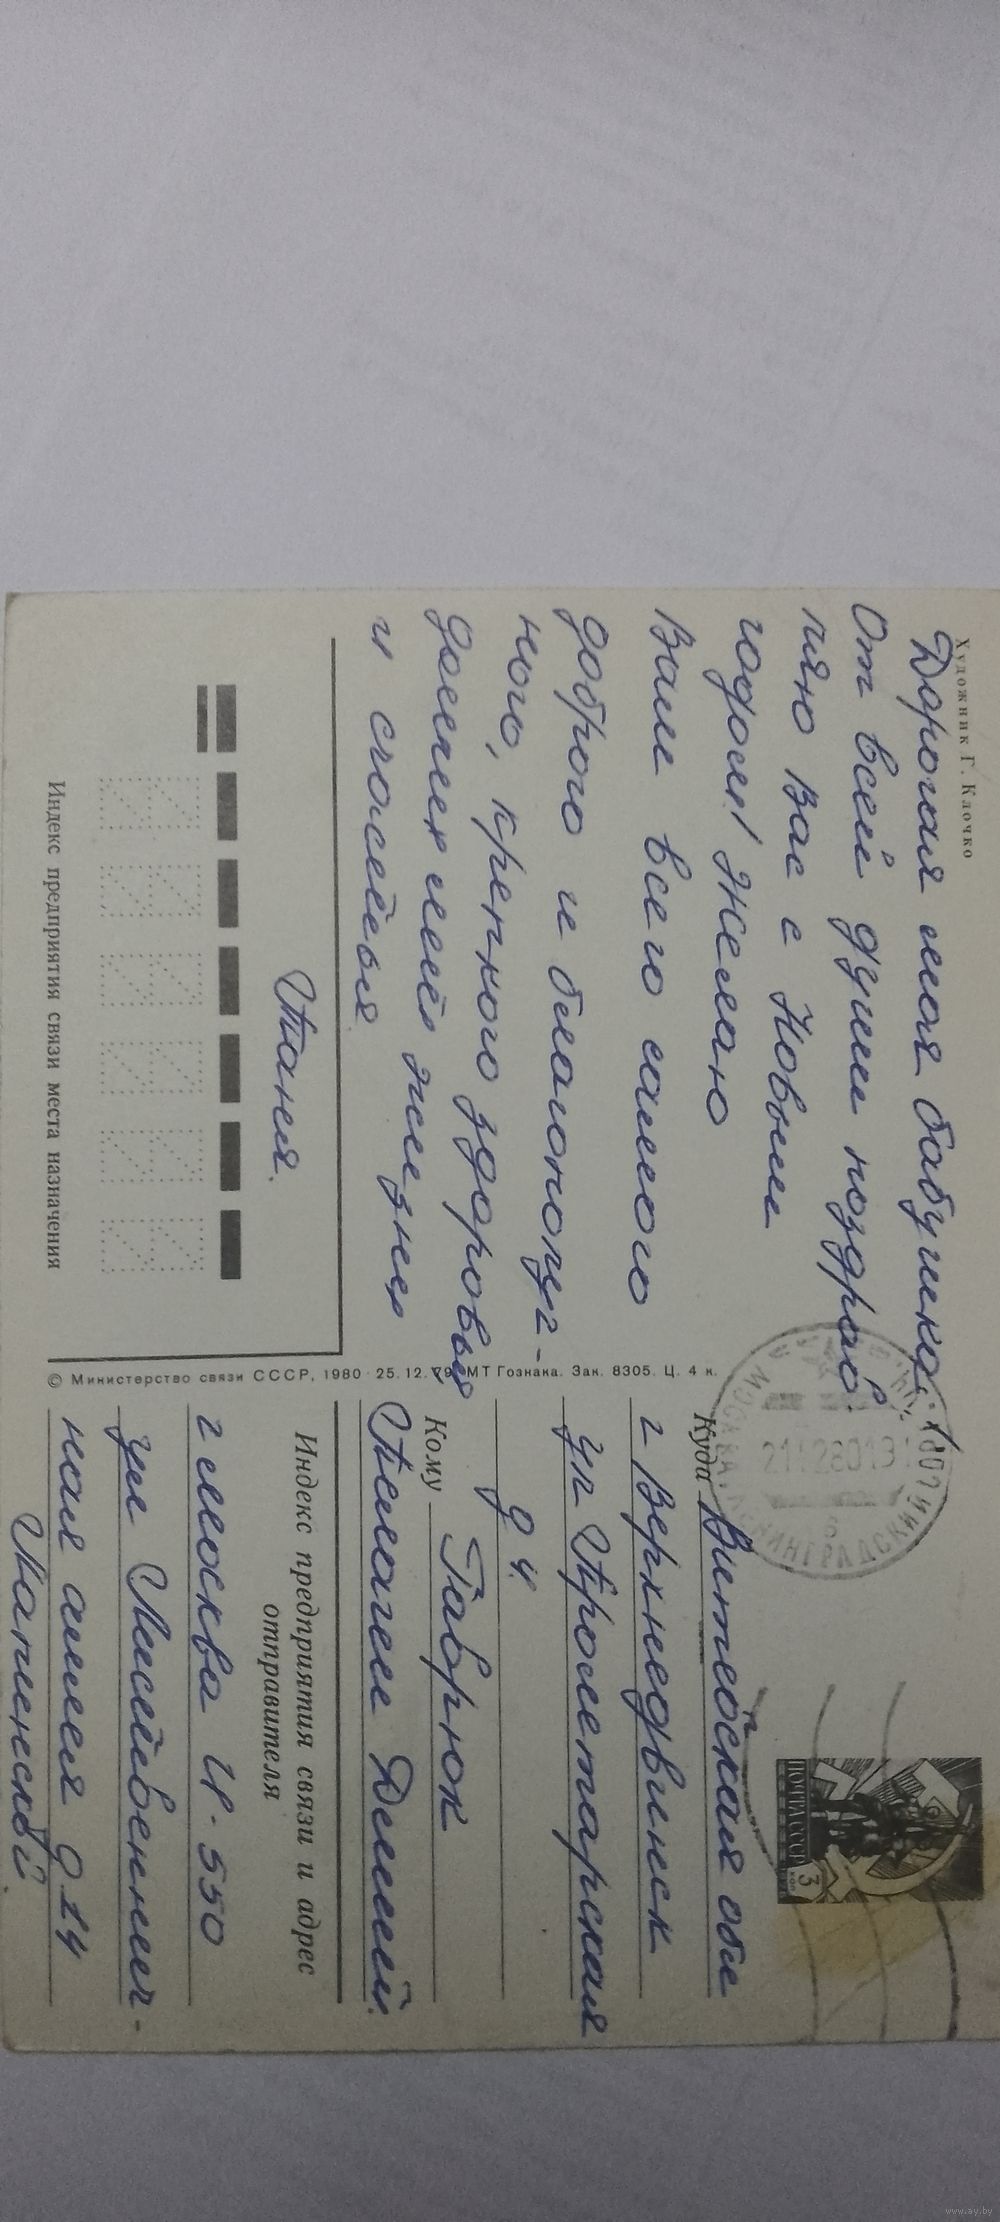 Художник Г. Клочко
Дорогая моя бабушка!
От всей души поздрав-
ляю Вас с Новым
годом! Желаю
Вам всего самого
доброго и благополуч-
ного, крепкого здоровья,
долгих лет жизни
и счастья.
Таня.
Индекс предприятия связи места назначения
© Министерство связи СССР, 1980 · 25.12.79. МТ Гознака. Зак. 8305. Ц. 4 к.
ПОЧТА СССР
3
коп
ЛЕНИНГРАДСКИЙ
Куда Витебская обл
г Верхнедвинск
ул Пролетарская
д 4
Кому Гаврюк
Пелагее Демид.
Индекс предприятия связи и адрес
отправителя
г Москва И-550
ул Лиственнич-
ная аллея д 14
www.ay.by